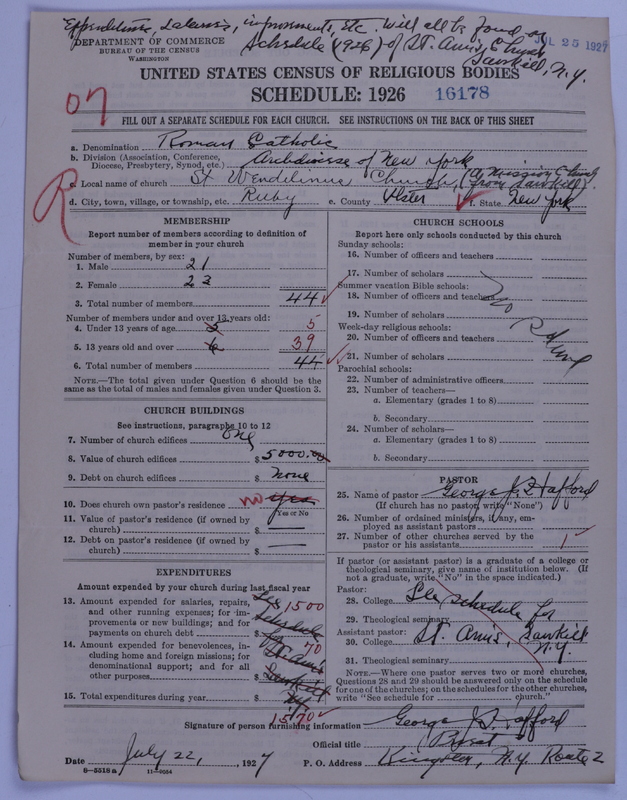 Expenditures, salaries, improvements, etc. will all be found on
Schedule (1926) of St. Ann's Church
Sawkill, N.Y.
JUL 25 1927
DEPARTMENT OF COMMERCE
BUREAU OF THE CENSUS
WASHINGTON
UNITED STATES CENSUS OF RELIGIOUS BODIES
SCHEDULE: 1926
16178
07
FILL OUT A SEPARATE SCHEDULE FOR EACH CHURCH. SEE INSTRUCTIONS ON THE BACK OF THIS SHEET
a. Denomination Roman Catholic
b. Division (Association, Conference, Diocese, Presbytery, Synod, etc.) Archdiocese of New York
c. Local name of church St Wendelinus Church (A Mission Church from Sawkill)
R
d. City, town, village, or township, etc. Ruby e. County Ulster f. State New York
MEMBERSHIP
Report number of members according to definition of
member in your church
Number of members, by sex:
1. Male 21
2. Female 23
3. Total number of members 44
Number of members under and over 13 years old:
4. Under 13 years of age 5 5
5. 13 years old and over 39
6. Total number of members 44
NOTE.—The total given under Question 6 should be the
same as the total of males and females given under Question 3.
CHURCH BUILDINGS
See instructions, paragraphs 10 to 12
7. Number of church edifices One
8. Value of church edifices $ 5000.00
9. Debt on church edifices $ None
10. Does church own pastor's residence no yes
Yes or No
11. Value of pastor's residence (if owned by
church) $ —
12. Debt on pastor's residence (if owned by
church) $ —
EXPENDITURES
Amount expended by your church during last fiscal year
13. Amount expended for salaries, repairs,
and other running expenses; for im-
provements or new buildings; and for
payments on church debt $ 1500
See schedule
14. Amount expended for benevolences, in-
cluding home and foreign missions; for
denominational support; and for all
other purposes $ 70
St. Ann's
Sawkill
N.Y.
15. Total expenditures during year $
1570
CHURCH SCHOOLS
Report here only schools conducted by this church
Sunday schools:
16. Number of officers and teachers
17. Number of scholars
Summer vacation Bible schools:
18. Number of officers and teachers
19. Number of scholars
Week-day religious schools:
20. Number of officers and teachers
21. Number of scholars
Parochial schools:
22. Number of administrative officers
23. Number of teachers—
a. Elementary (grades 1 to 8)
b. Secondary
24. Number of scholars—
a. Elementary (grades 1 to 8)
b. Secondary
No
PASTOR
25. Name of pastor George J. Hafford
(If church has no pastor, write "None")
26. Number of ordained ministers, if any, em-
ployed as assistant pastors
27. Number of other churches served by the
pastor or his assistants 1
If pastor (or assistant pastor) is a graduate of a college or
theological seminary, give name of institution below. (If
not a graduate, write "No" in the space indicated.)
Pastor:
28. College See schedule for
29. Theological seminary
Assistant pastor:
30. College St. Ann's, Sawkill
N.Y.
31. Theological seminary
NOTE.—Where one pastor serves two or more churches,
Questions 28 and 29 should be answered only on the schedule
for one of the churches; on the schedules for the other churches,
write "See schedule for church."
Signature of person furnishing information George J. Hafford
Official title
Date July 22, 1927 P. O. Address Kingston, N.Y. Route 2
8—5518a 11—9054